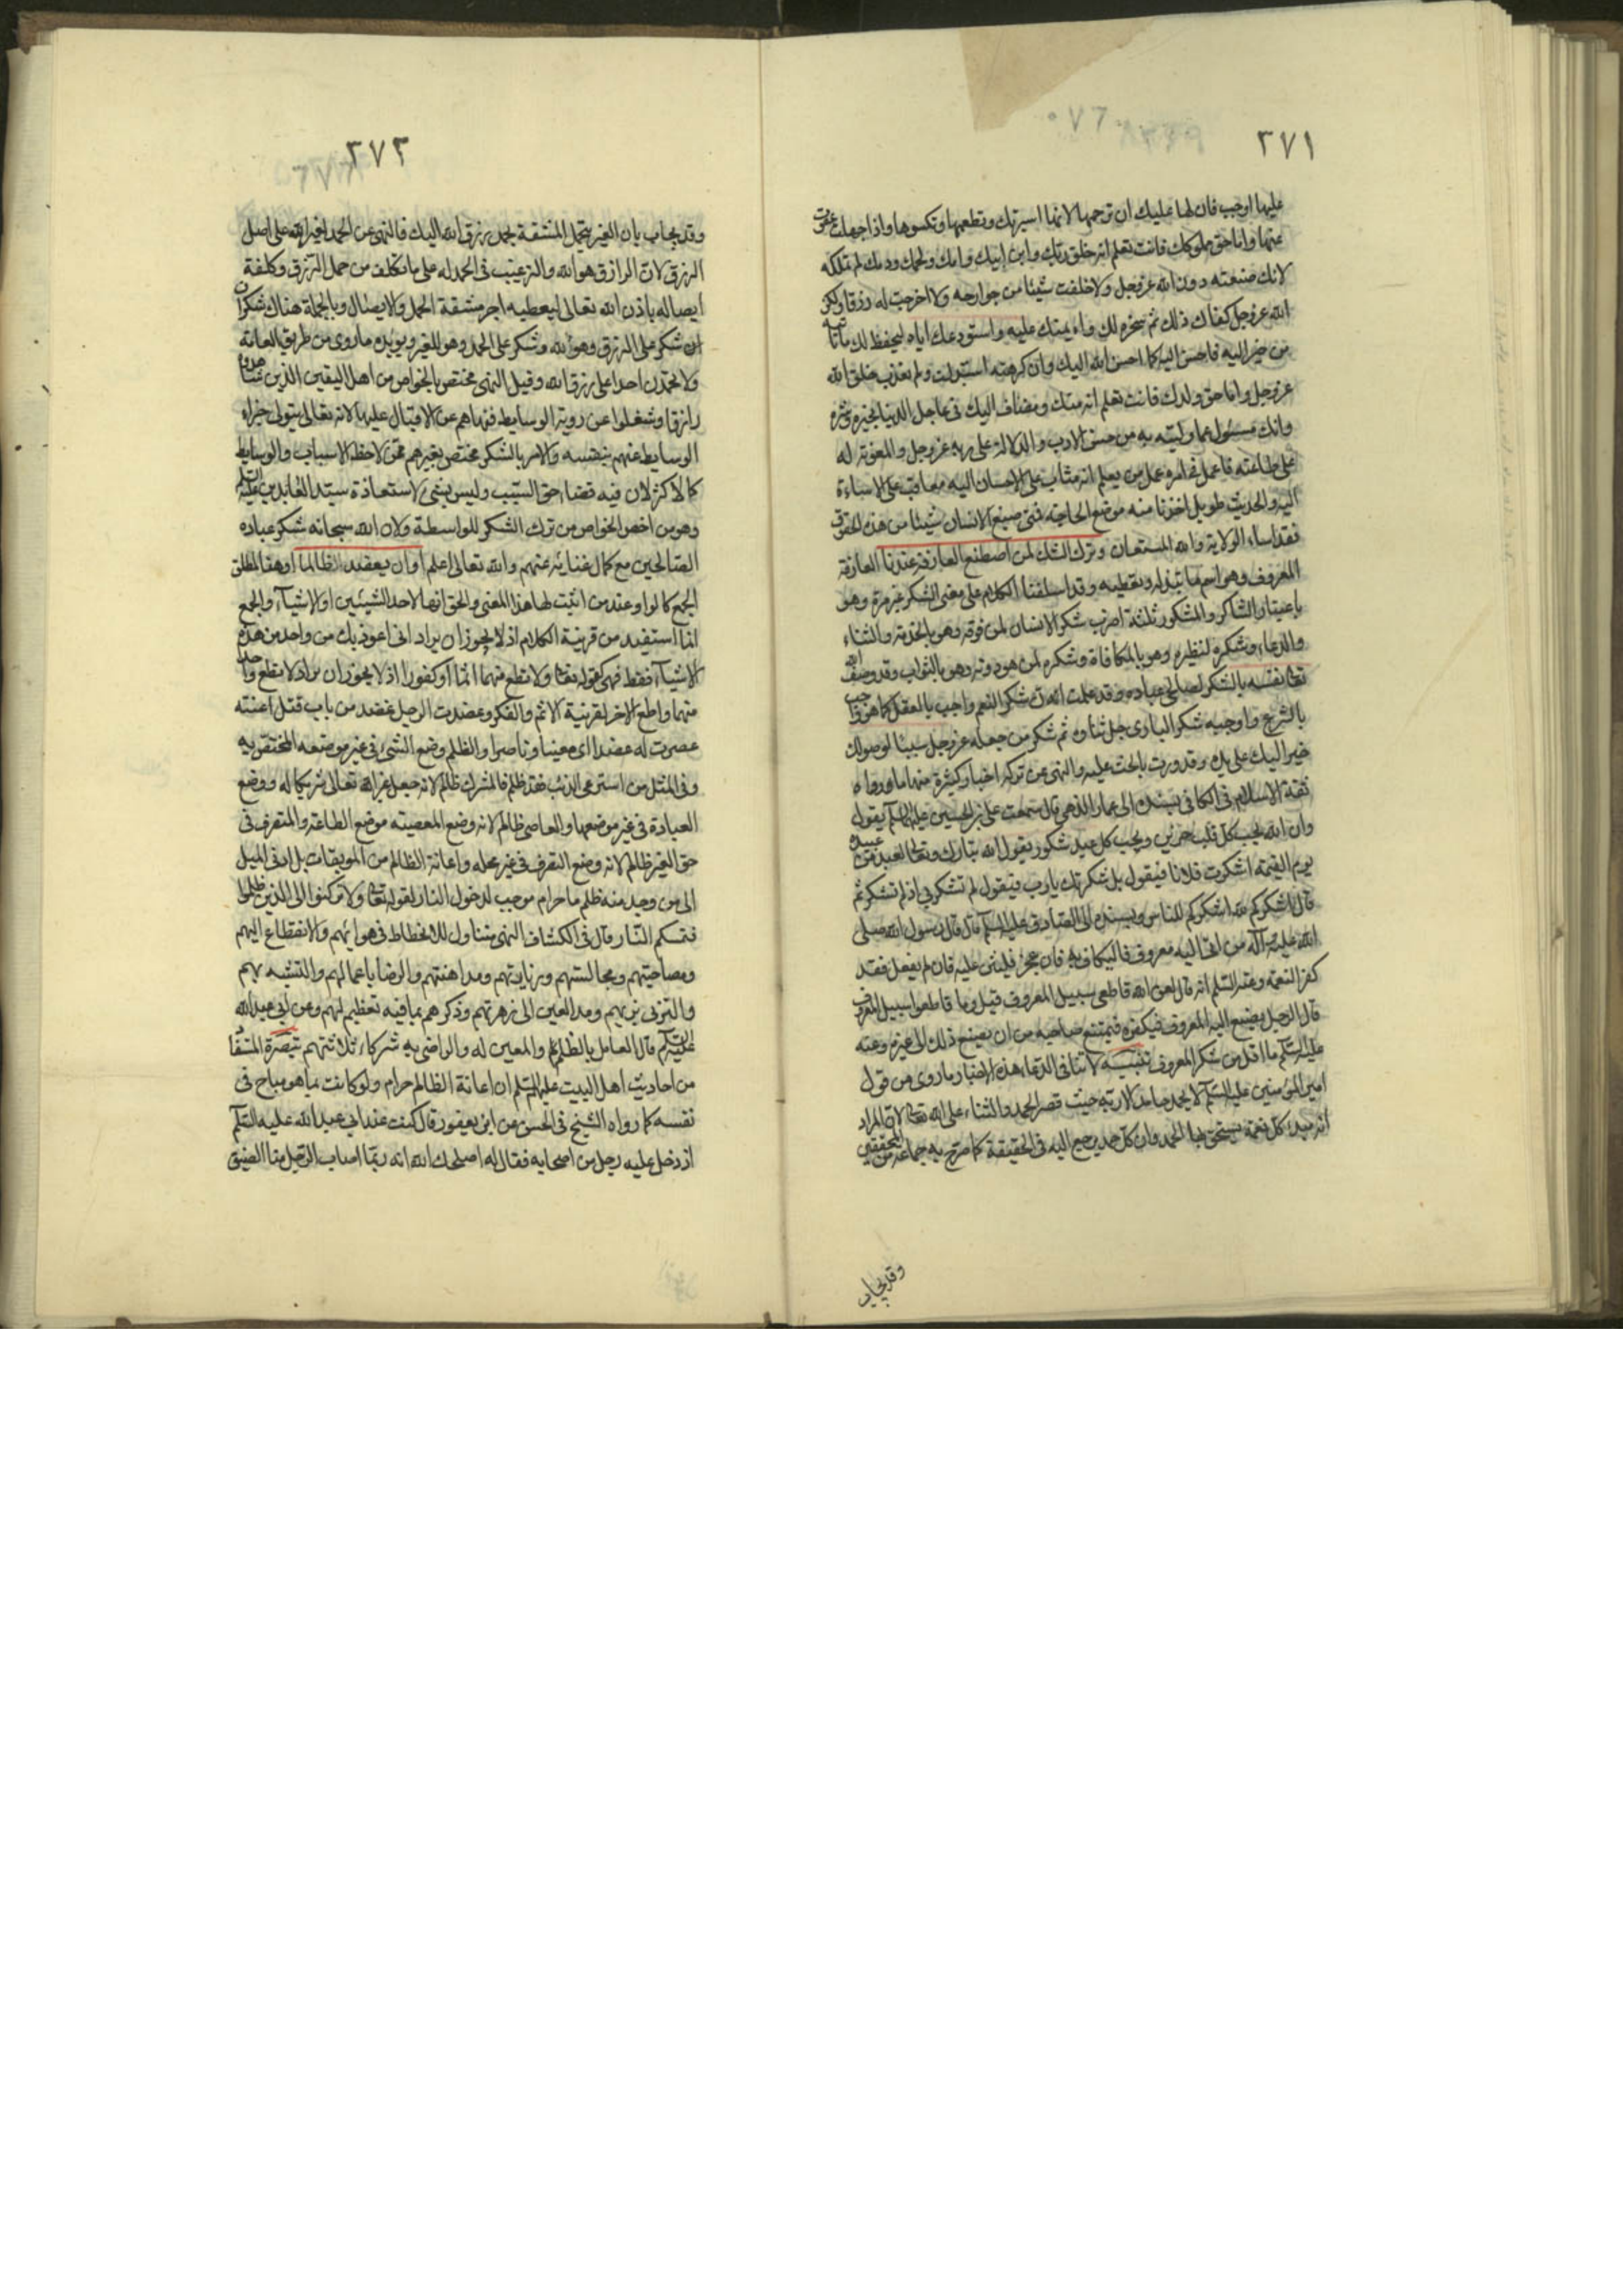 ٢٧١
عليها اوجب فان لها عليك ان ترحمها لانها اسيرتك وتطعمها وتكسوها واذا جهلت عفوت
عنها واما حق مملوكك فانت تعلم انه خلق ربك وابن ابيك وامك ولحمك ودمك لم تملكه
لانك صنعته دون الله عز وجل ولا خلقت شيئا من جوارحه ولا اخرجت له رزقا ولكن
الله عز وجل كفاك ذلك ثم سخره لك وامنك عليه واستودعك اياه ليحفظ لك ما تاتيه
من خير اليه فاحسن اليه كما احسن الله اليك وان كرهته استبدلت ولم تعذب خلق الله
عز وجل واما حق ولدك فانت تعلم انه منك ومضاف اليك في عاجل الدنيا بخيره وشره
وانك مسئول عما وليته به من حسن الادب والدلالة على ربه عز وجل والمعونة له
على طاعته فاعمل في امره عمل من يعلم انه مثاب على الاحسان اليه معاقب على الاساءة
اليه والحديث طويل اخذنا منه موضع الحاجة فمتى صنع الانسان شيئا من هذه الحقوق
فقد اساء الولاية والله المستعان وترك الشكر لمن اصطنع العارفة عندنا العارفة
المعروف وهو اسم ما تبذله وتعطيه وقد اسلفنا الكلام على معنى الشكر غير مرة وهو
باعتبار الشاكر والمشكور ثلثة اضرب شكر الانسان لمن فوقه وهو بالخدمة والثناء
والدعاء وشكره لنظيره وهو بالمكافاة وشكره لمن هو دونه وهو بالثواب وقد وصف الله
تعالى نفسه بالشكر لصالحي عباده وقد علمت ان شكر المنعم واجب بالعقل كما هو واجب
بالشرع واوجبه شكر الباري جل ثناؤه ثم شكر من جعله عز وجل سببا لوصولك
خير اليك على يده وقد وردت بالحث عليه والنهي عن تركه اخبار كثيرة منها ما رواه
ثقة الاسلام في الكافي بسنده الى عمار الدهني قال سمعت علي بن الحسين عليهما السلم يقول
وان الله يحب كل قلب حزين ويحب كل عبد شكور يقول الله تبارك وتعالى لعبد من عبيده
يوم القيمة اشكرت فلانا فيقول بل شكرتك يا رب فيقول لم تشكرني اذ لم تشكره ثم
قال اشكركم لله اشكركم للناس وبسنده الى الصادق عليه السلم قال قال رسول الله صلى
الله عليه وآله من اتى اليه معروف فاليكاف به فان عجز فليثن عليه فان لم يفعل فقد
كفر النعمة وعنه السلم انه قال لعن الله قاطعي سبيل المعروف قيل وما قاطعوا سبيل المعروف
قال الرجل يصنع اليه المعروف فيكفره فيمتنع صاحبه من ان يصنع ذلك الى غيره وعنه
عليه السلم ما اقل من شكر المعروف تنبيه لا تنافى الدعاء هذه الاخبار ما روى من قول
امير المؤمنين عليه السلم لا يحمد حامد الا ربه حيث قصر الحمد والثناء على الله تعالى لان المراد
انه مبدء كل نعمة يستحق بها الحمد وان كل حمد يرجع اليه في الحقيقة كما صرح به جماعة من المحققين
وقد يجاب
٢٧٢
وقد يجاب بان الغير يتحمل المشقة بحمل رزق الله اليك فالنهي عن الحمد لغير الله على اصل
الرزق لان الرازق هو الله والترغيب في الحمد له على ما تكلف من حمل الرزق وكلفة
ايصاله باذن الله تعالى ليعطيه اجر مشقة الحمل والايصال وبالجملة هناك شكران
شكر على الرزق وهو لله وشكر على الحمد وهو للغير ويؤيده ما روى من طريق العامة
ولا تحمدن احدا على رزق الله وقيل النهي مختص بالخواص من اهل اليقين الذين شاهدوا
رازقا وشغلوا عن روية الوسايط فنهاهم عن الاقبال عليها لانه تعالى يتولى جزاء
الوسايط عنهم بنفسه والامر بالشكر مختص بغيرهم ممن لاحظ الاسباب والوسايط
كالاكثر لان فيه قضاء حق السبب وليس بشئ لاستعاذة سيد العابدين عليه السلم
وهو من اخص الخواص من ترك الشكر للواسطة ولان الله سبحانه شكر عباده
الصالحين مع كمال غنائه عنهم والله تعالى اعلم او ان يعضد الظالما او هنا لمطلق
الجمع كالواو عند من اثبت لها هذا المعنى والحق انها لاحد الشيئين او الاشياء والجمع
انما استفيد من قرينة الكلام اذ لا يجوز ان يراد انى اعوذ بك من واحد من هذه
الاشياء فقط فهي كقوله تعالى ولا تطع منهما اثما او كفورا اذ لا يجوز ان يراد لا تطع واحدا
منهما واطع الاخر لقرينة الاثم والفكر وعضدت الرجل عضد من باب قتل اعنته
عصرت له عضدا اى معينا وناصرا والظلم وضع الشئ في غير موضعه المختص به
وفي المثل من استرعى الذئب فقد ظلم فالمشرك ظالم لانه جعل غير الله تعالى شريكا له ووضع
العبادة في غير موضعها والعاصي ظالم لانه وضع المعصية موضع الطاعة والمتصرف في
حق الغير ظالم لانه وضع التصرف في غير محله واعانة الظالم من الموبقات بل ادنى الميل
الى من وجد منه ظلم ما حرام موجب لدخول النار لقوله تعالى ولا تركنوا الى الذين ظلموا
فتمسكم النار قال في الكشاف النهي متناول للانحطاط في هوائهم والانقطاع اليهم
ومصاحبتهم ومجالستهم وزيارتهم ومداهنتهم والرضا باعمالهم والتشبه بهم
والتزيي بزيهم ومد العين الى زهرتهم وذكرهم بما فيه تعظيم لهم وعن ابي عبد الله
عليه السلم قال العامل بالظلم والمعين له والراضى به شركاء ثلاثتهم تبصرة المستفاد
من احاديث اهل البيت عليهم السلم ان اعانة الظالم حرام ولو كانت بما هو مباح في
نفسه كما رواه الشيخ في الحسن عن ابن يعفور قال كنت عند ابي عبد الله عليه السلم
اذ دخل عليه رجل من اصحابه فقال له اصلحك الله انه ربما اصاب الرجل منا الضيق